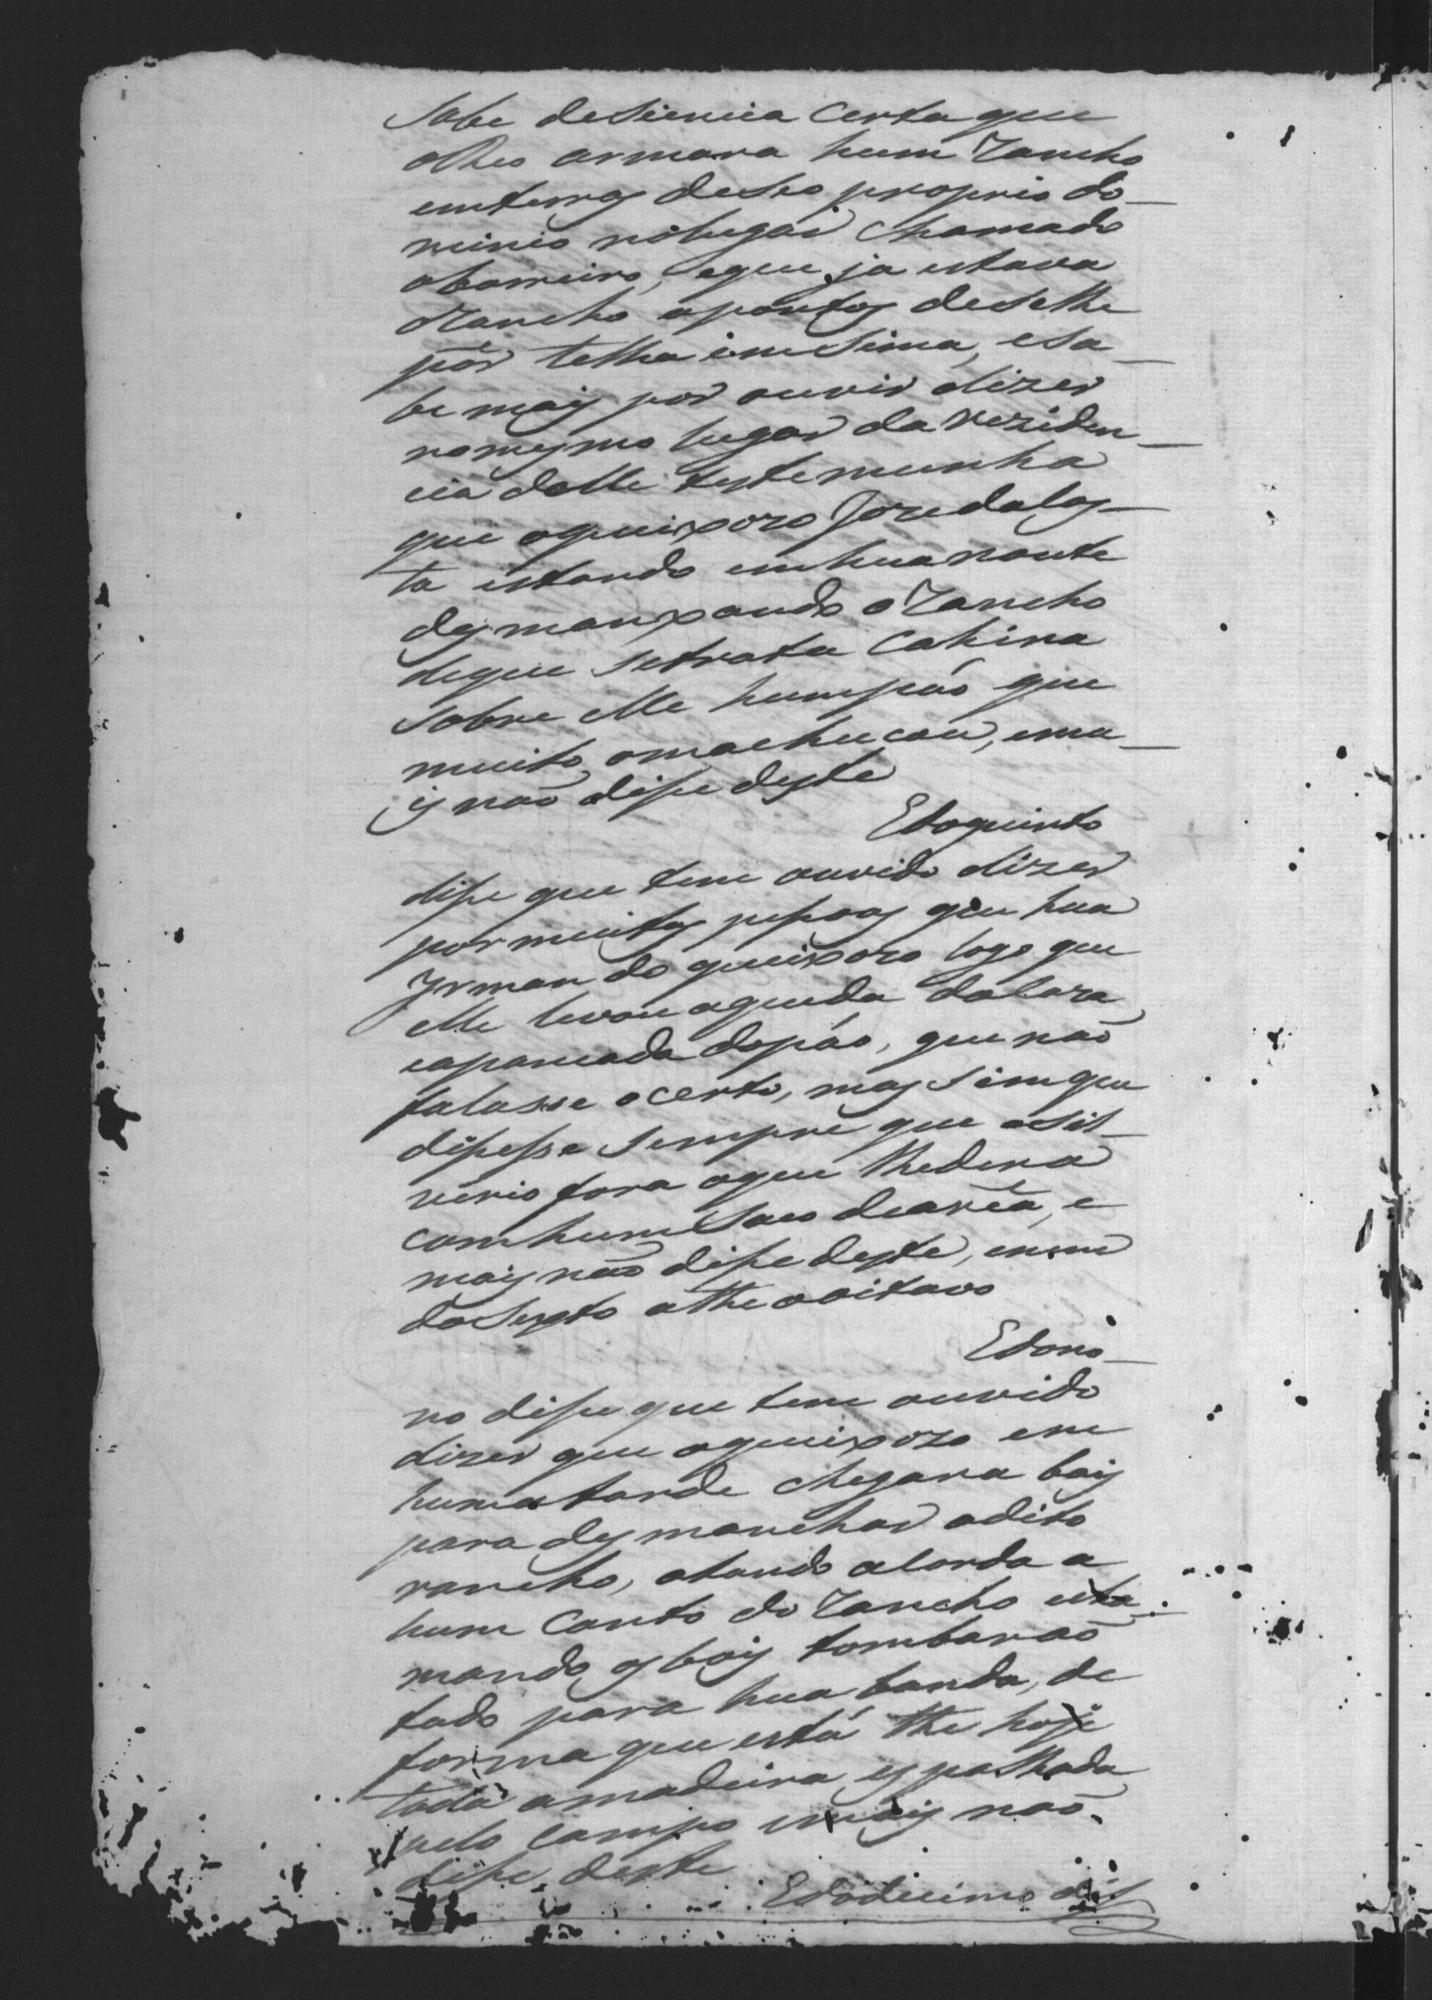 Sabe desiencia certa que
o Reo armara hum Rancho
em terras deseo proprio do-
minio no lugar chamado
o barreiro, e que ja estava
o Rancho a pontos de se lhe
pôr telha em sima, e sa-
be mais por ouvir dizer
no mesmo lugar da reziden-
cia delle testemunha
que o queixozo Joze da Cos-
ta estando em hua noute
desmanxando o Rancho
de que se trata cahira
sobre elle hum páo que
muito o machucou, e ma-
is não dise deste
E do quinto
dise que tem ouvido dizer
por muitas pesoas que hua
Yrman do queixozo logo que
elle levou aquella
pancada do páo, que não
falasse o certo, mas sim que
disesse sempre que o Sil-
verio fora o que lhe dera
com hum saco de arêa, e
mais não dise deste, nem
do sexto athe o oitavo
E do no-
no dise que tem ouvido
dizer que o queixozo em
huma tarde chegara bois
para desmanchar o dito
rancho, atando a corda a
hum canto do Rancho e to-
mando os bois tombarão
tudo para hua banda, de
forma que está the hoje
toda a madeira espalhada
pelo campo e mais não
dise deste
E do decimo dis